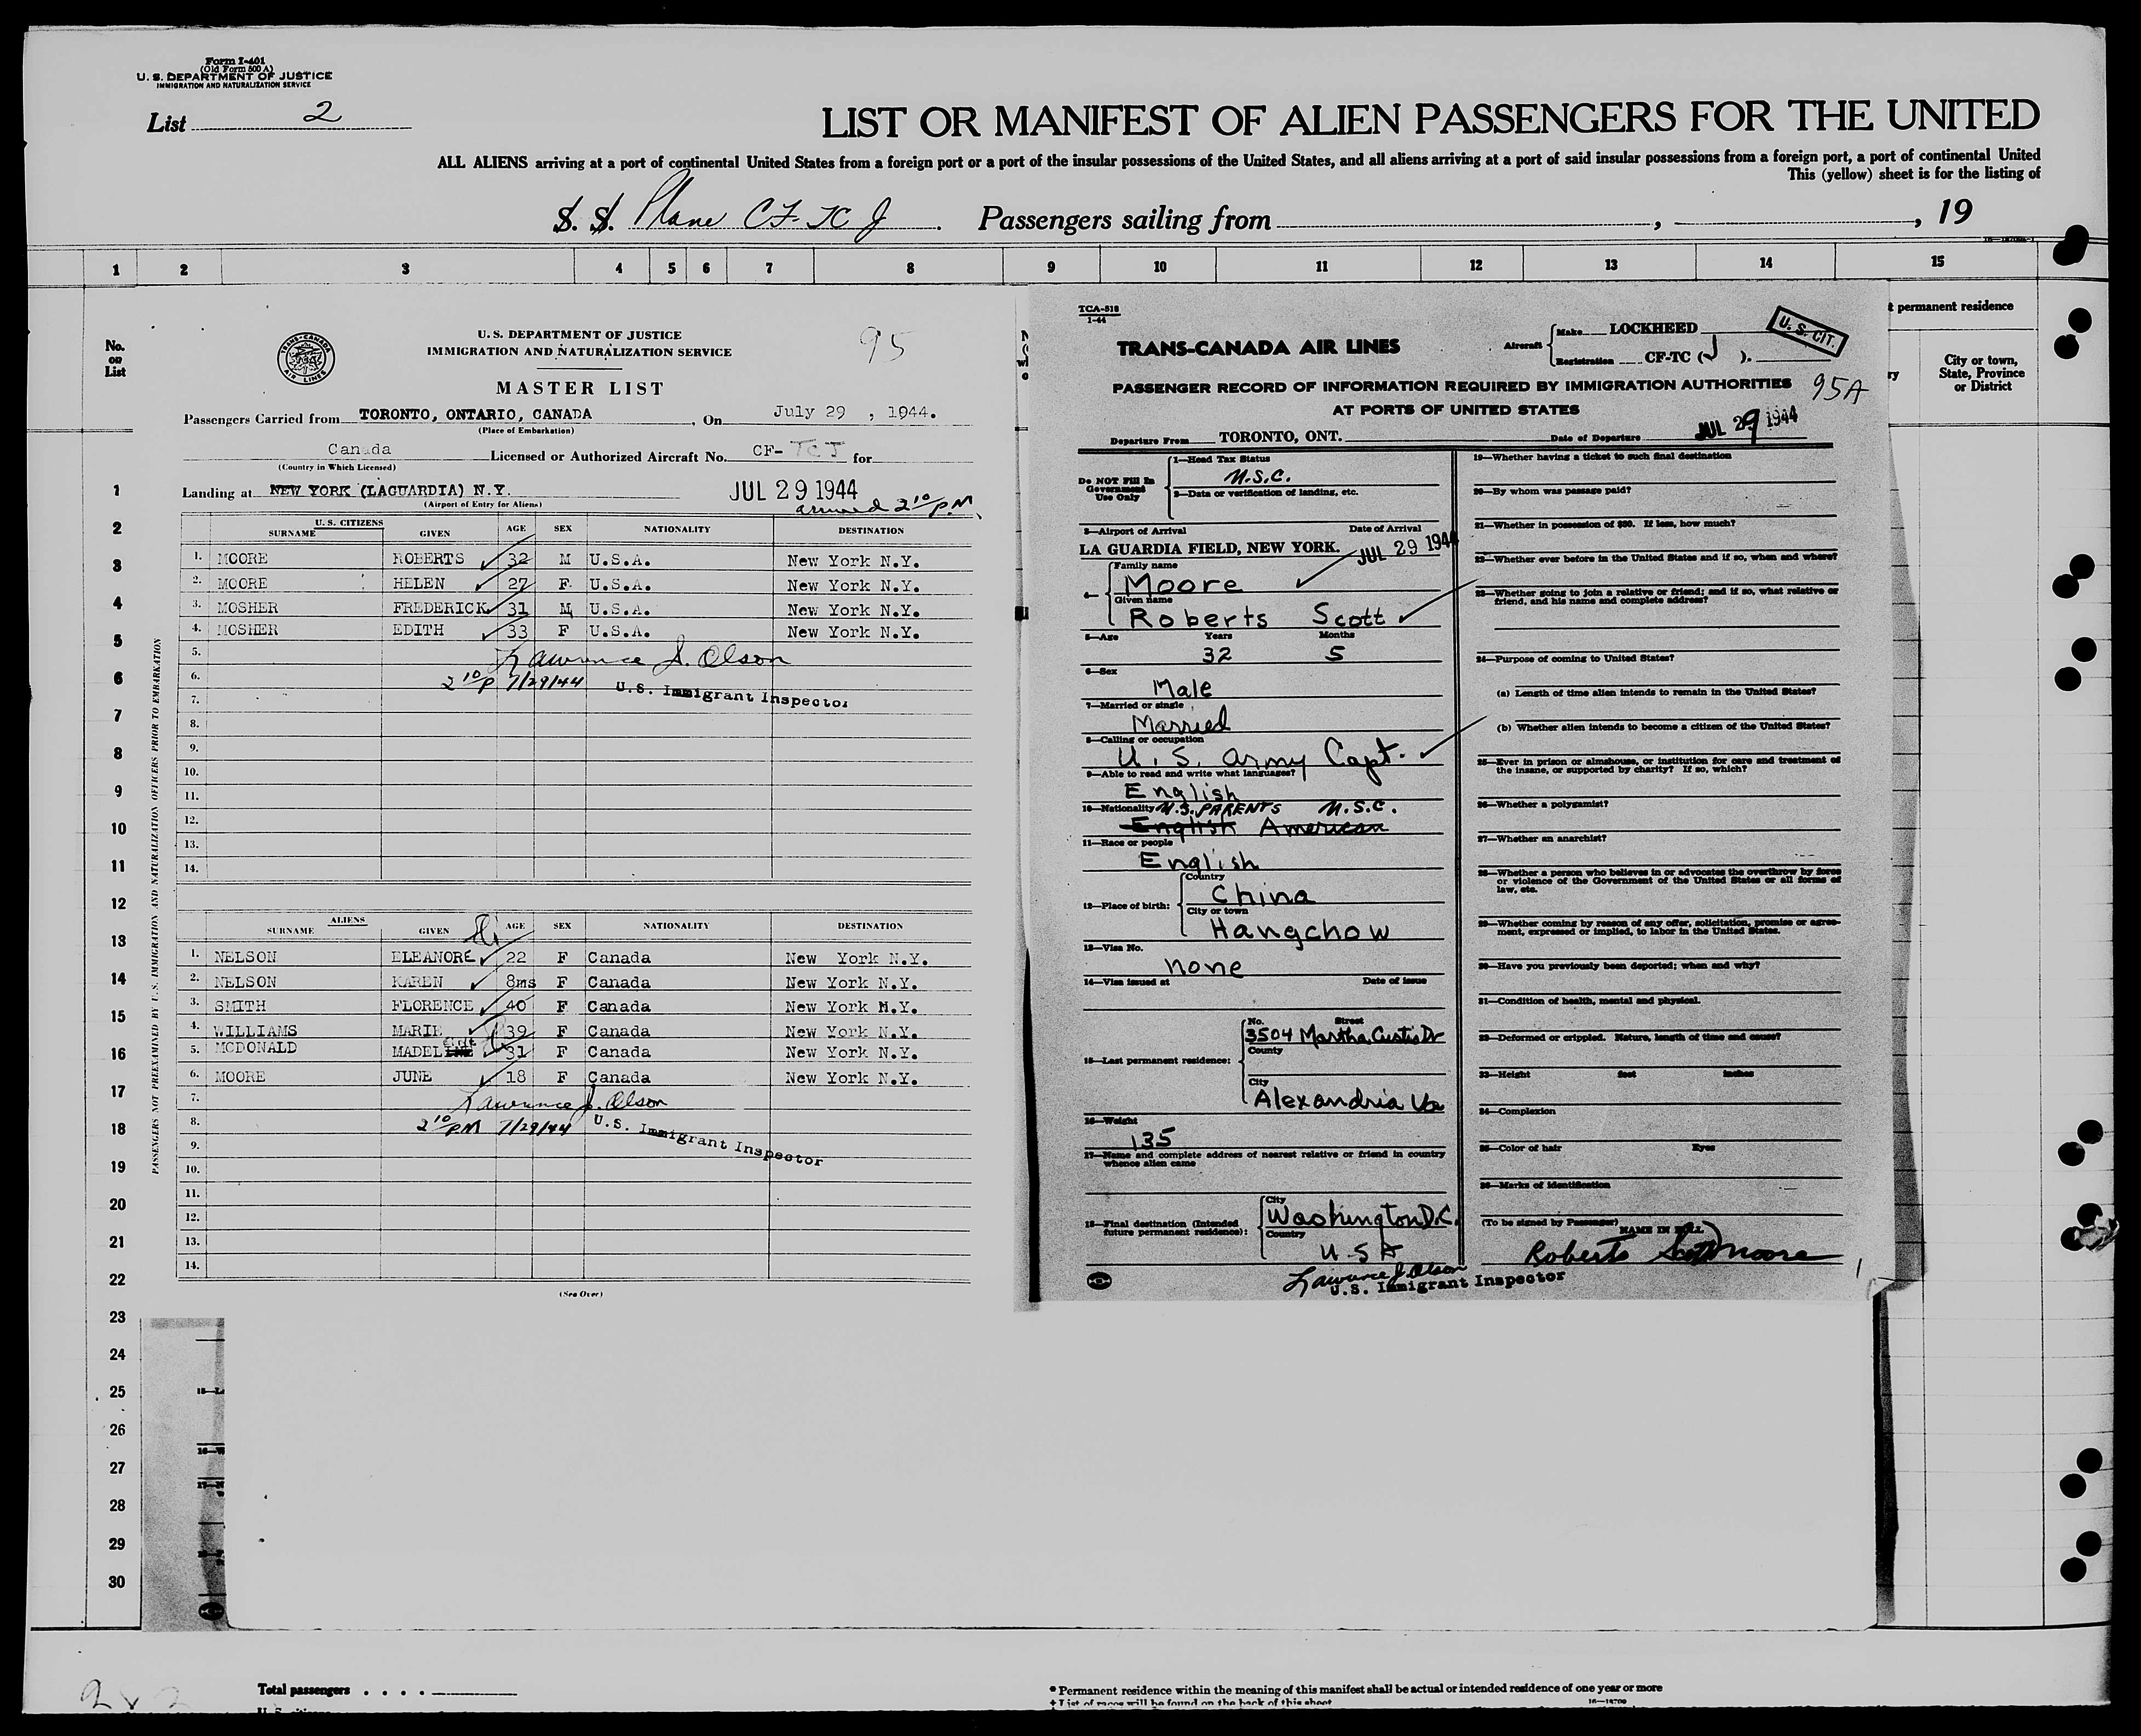 Form I-401
(Old Form 500 A)
U. S. DEPARTMENT OF JUSTICE
IMMIGRATION AND NATURALIZATION SERVICE
List 2
LIST OR MANIFEST OF ALIEN PASSENGERS FOR THE UNITED
ALL ALIENS arriving at a port of continental United States from a foreign port or a port of the insular possessions of the United States, and all aliens arriving at a port of said insular possessions from a foreign port, a port of continental United
This (yellow) sheet is for the listing of
S. S. Plane CF-TC J. Passengers sailing from , , 19
1 2 3 4 5 6 7 8 9 10 11 12 13 14 15
No. on List
1
2
3
4
5
6
7
8
9
10
11
12
13
14
15
16
17
18
19
20
21
22
23
24
25
26
27
28
29
30
PASSENGERS NOT PREEXAMINED BY U.S. IMMIGRATION AND NATURALIZATION OFFICERS PRIOR TO EMBARKATION
TRANS-CANADA AIR LINES
U. S. DEPARTMENT OF JUSTICE
IMMIGRATION AND NATURALIZATION SERVICE
95
MASTER LIST
Passengers Carried from TORONTO, ONTARIO, CANADA, On July 29, 1944.
(Place of Embarkation)
Canada Licensed or Authorized Aircraft No. CF- TCJ for
(Country in Which Licensed)
Landing at NEW YORK (LAGUARDIA) N.Y. JUL 29 1944
(Airport of Entry for Aliens) arrived 2 10/ P.M
U. S. CITIZENS
SURNAME GIVEN AGE SEX NATIONALITY DESTINATION
1. MOORE ROBERTS 32 M U.S.A. New York N.Y.
2. MOORE HELEN 27 F U.S.A. New York N.Y.
3. MOSHER FREDERICK 31 M U.S.A. New York N.Y.
4. MOSHER EDITH 33 F U.S.A. New York N.Y.
5. Lawrence J. Olson
6. 2 10 P 7/29/44 U.S. Immigrant Inspector
7.
8.
9.
10.
11.
12.
13.
14.
ALIENS
SURNAME GIVEN AGE SEX NATIONALITY DESTINATION
1. NELSON ELEANORE 22 F Canada New York N.Y.
2. NELSON KAREN 8ms F Canada New York N.Y.
3. SMITH FLORENCE 40 F Canada New York N.Y.
4. WILLIAMS MARIE 39 F Canada New York N.Y.
5. MCDONALD MADELINE 31 F Canada New York N.Y.
6. MOORE JUNE 18 F Canada New York N.Y.
7. Lawrence J. Olson
8. 2 10 PM 7/29/44 U.S. Immigrant Inspector
9.
10.
11.
12.
13.
14.
(See Over)
TCA-518
1-44
TRANS-CANADA AIR LINES
Aircraft Make LOCKHEED
Registration CF-TC (J).
U. S. CIT.
PASSENGER RECORD OF INFORMATION REQUIRED BY IMMIGRATION AUTHORITIES
AT PORTS OF UNITED STATES
95A
Departure From TORONTO, ONT. Date of Departure JUL 29 1944
Do NOT Fill In Government Use Only
1—Head Tax Status
U.S.C.
2—Data or verification of landing, etc.
3—Airport of Arrival Date of Arrival
LA GUARDIA FIELD, NEW YORK. JUL 29 1944
4— Family name
Moore
Given name
Roberts Scott
5—Age Years Months
32 5
6—Sex
Male
7—Married or single
Married
8—Calling or occupation
U. S. Army Capt.
9—Able to read and write what languages?
English
10—Nationality U.S. PARENTS U.S.C.
English American
11—Race or people
English
12—Place of birth: Country
China
City or town
Hangchow
13—Visa No.
none
14—Visa issued at Date of issue
15—Last permanent residence: No. Street
3504 Martha Custis Dr
County
City
Alexandria Va
16—Weight
135
17—Name and complete address of nearest relative or friend in country whence alien came
18—Final destination (Intended future permanent residence): City
Washington D.C.
Country
U S A
Lawrence J. Olson
U.S. Immigrant Inspector
19—Whether having a ticket to such final destination
20—By whom was passage paid?
21—Whether in possession of $50. If less, how much?
22—Whether ever before in the United States and if so, when and where?
23—Whether going to join a relative or friend; and if so, what relative or friend, and his name and complete address?
24—Purpose of coming to United States?
(a) Length of time alien intends to remain in the United States?
(b) Whether alien intends to become a citizen of the United States?
25—Ever in prison or almshouse, or institution for care and treatment of the insane, or supported by charity? If so, which?
26—Whether a polygamist?
27—Whether an anarchist?
28—Whether a person who believes in or advocates the overthrow by force or violence of the Government of the United States or all forms of law, etc.
29—Whether coming by reason of any offer, solicitation, promise or agreement, expressed or implied, to labor in the United States.
30—Have you previously been deported; when and why?
31—Condition of health, mental and physical.
32—Deformed or crippled. Nature, length of time and cause?
33—Height feet inches
34—Complexion
35—Color of hair Eyes
36—Marks of identification
(To be signed by Passenger) NAME IN FULL
Roberts Scott Moore
permanent residence
City or town, State, Province or District
Total passengers . . . .
* Permanent residence within the meaning of this manifest shall be actual or intended residence of one year or more
† List of races will be found on the back of this sheet